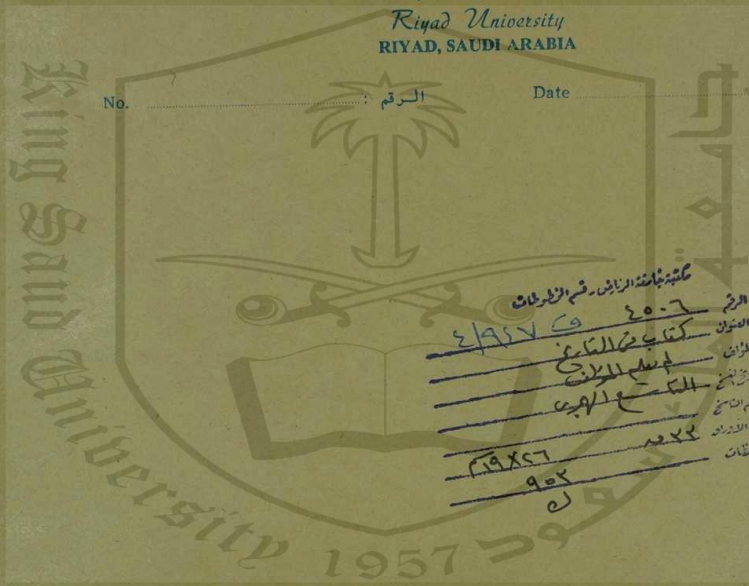 Riyad University
RIYAD, SAUDI ARABIA
No. الرقم : Date
King Saud University
1957
مكتبة جامعة الرياض - قسم المخطوطات
الرقم ٤٥٠٦ ف ٤/٩٤٧
العنوان كتاب في التاريخ
المؤلف لم يعلم المؤلف
التاسع الهجري
اسم الناسخ
الأوراق ٣٣ ٢٦×١٩
٩٥٣
ك